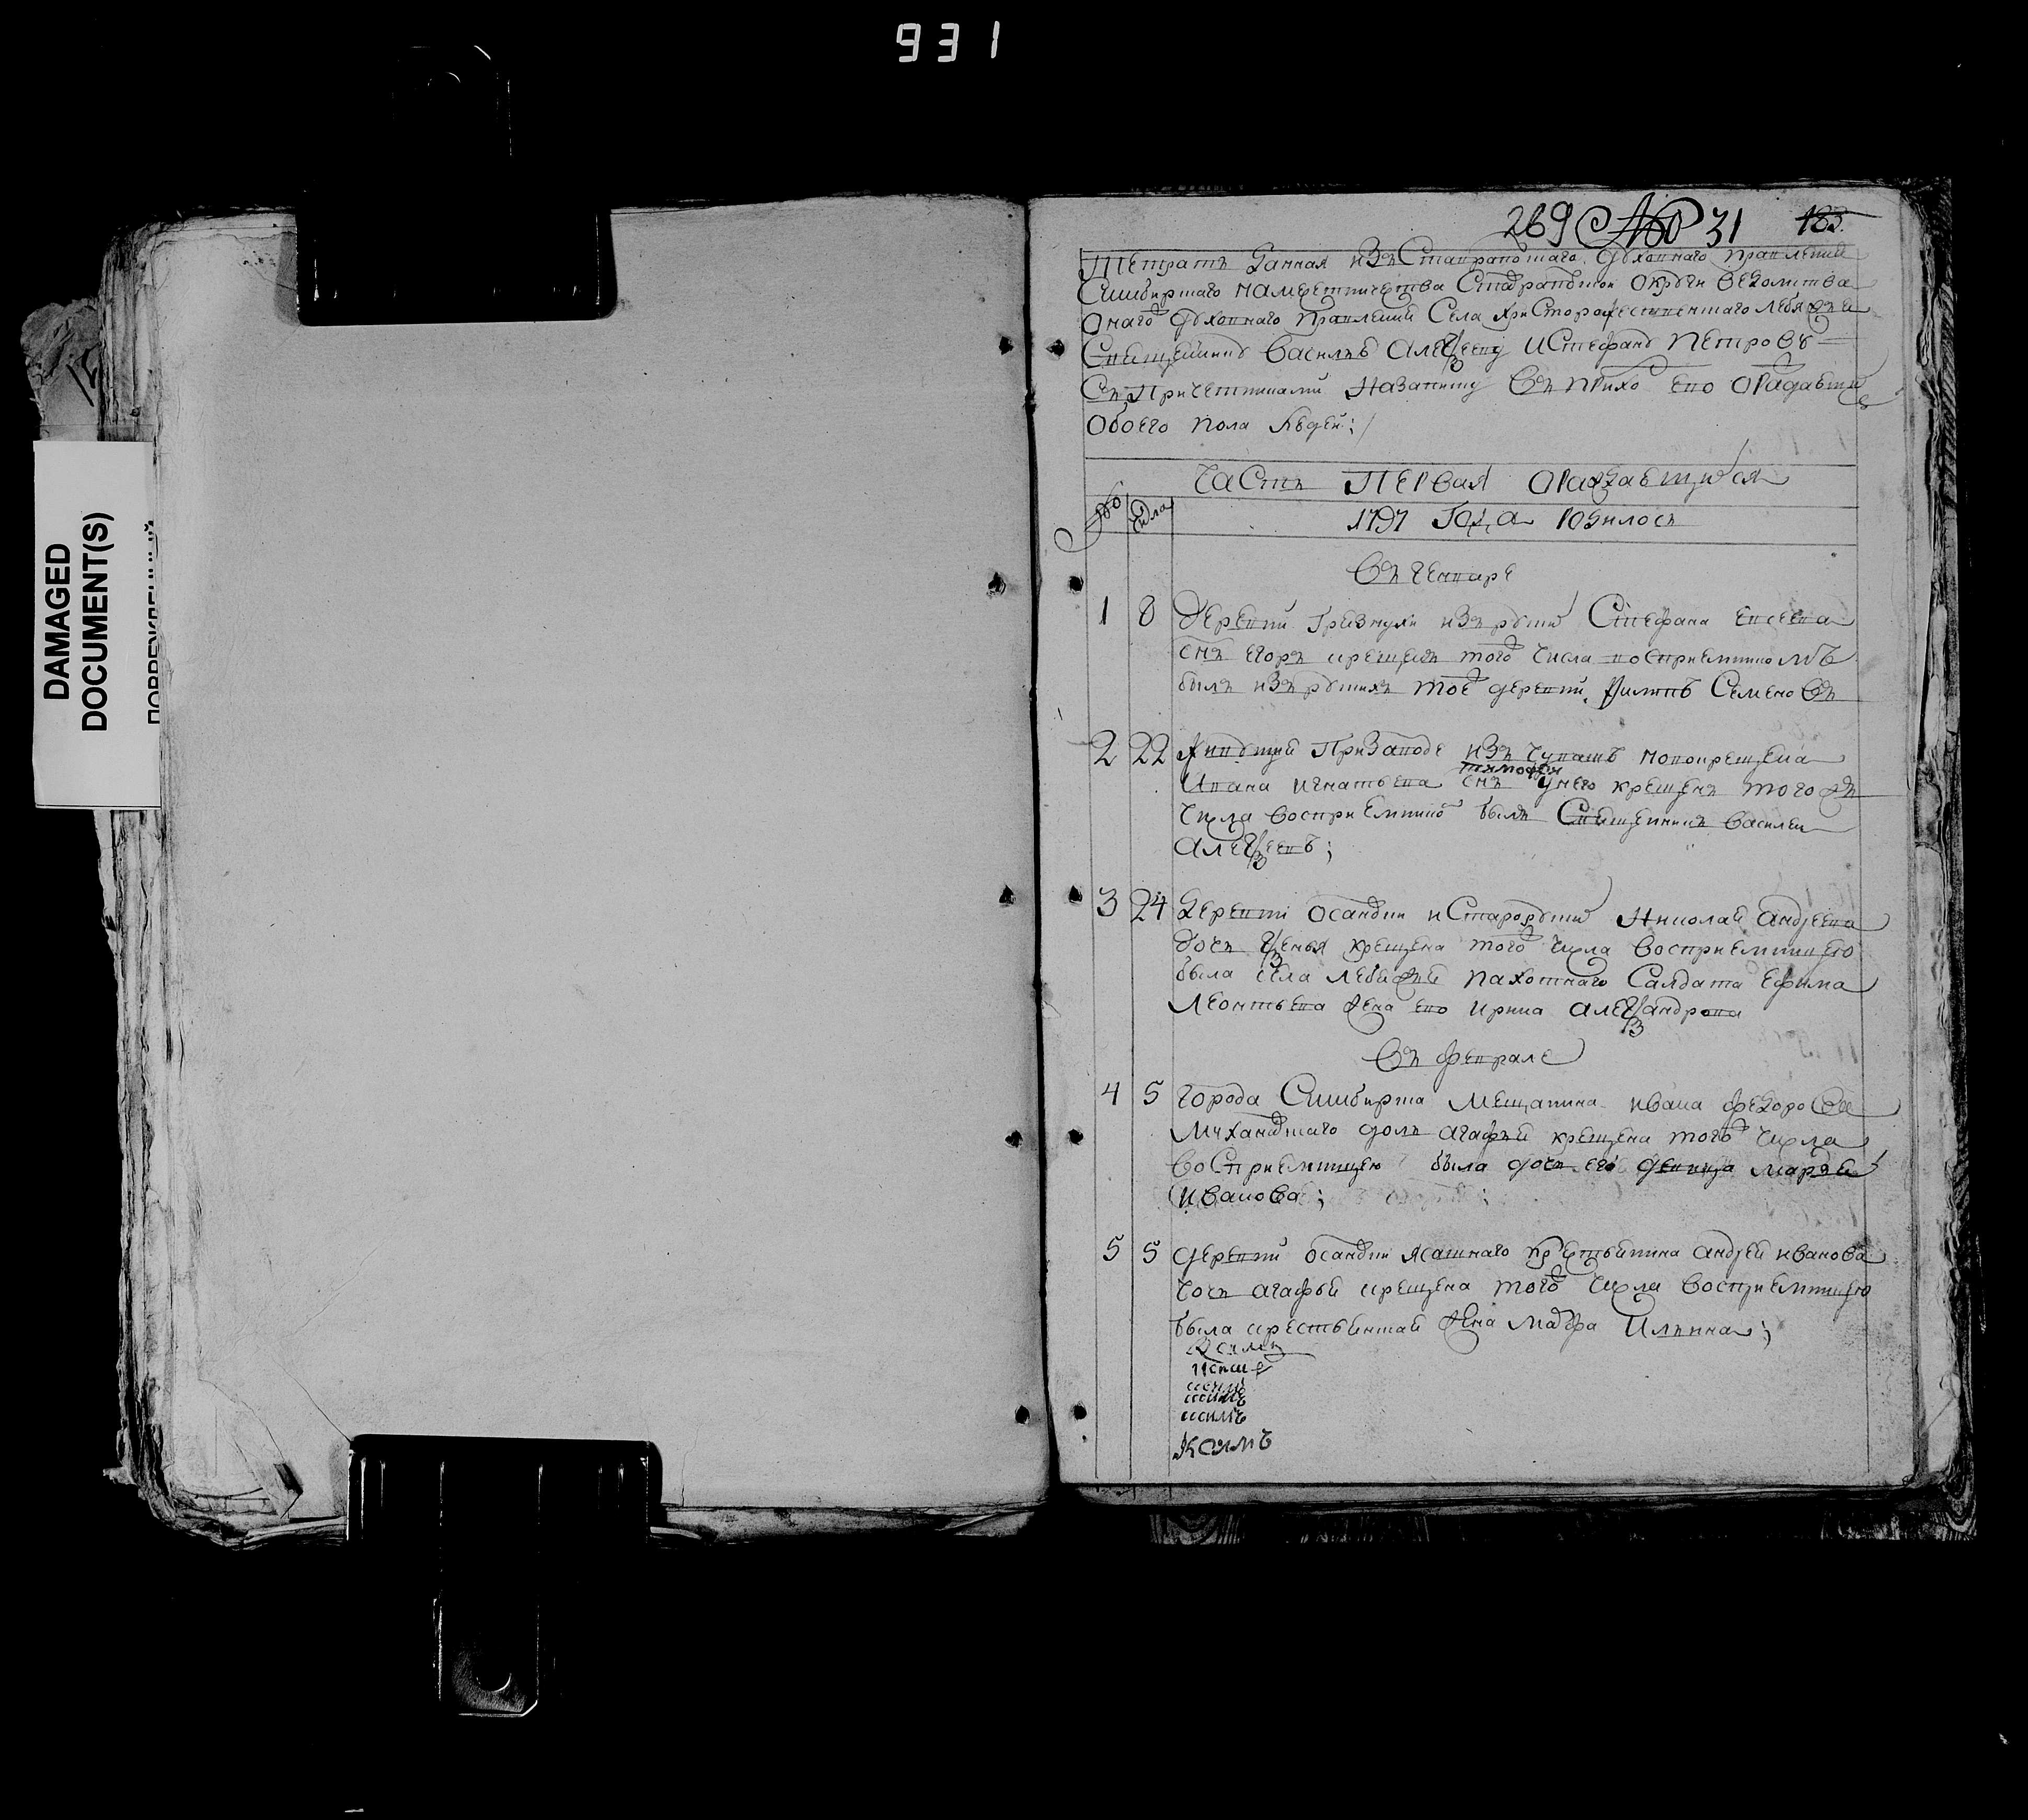 931
DAMAGED
DOCUMENT(S)
269 № 31 183.
Тетрать данная изъ Ставрапольскаго духовнаго правления
Синбирскаго намесничества Ставрапольской округи ведомства
онаго духовнаго правления Села Христорожественскаго Лебяжья
Священнику Василью Алеѯееву и Стефану Петрову
Съ причетниками на записку въ прихо ево о раждавших
обоего пола людей:
Часть первая о раждавшихся
№ числа
1797 Года родилось
Въ генваре
1 8 деревни Грязнухи изъ руских Стефана Евсеева
снъ Егоръ крещенъ того числа восприемникомъ
былъ изъ руских тое деревни Филипъ Семеновъ
2 22 живущий при заводе изъ чувашъ новокрещена
тимофей
Ивана Игнатьева снъ у него крещенъ того жъ
числа восприемнико былъ Священникъ Василеи
Алеѯеевъ;
3 24 деревни Осановки и староруских Николая Андреева
дочь Ѯенья крещена того числа восприемницею
была села Лебяжья пахотнаго Салдата Ефима
Леонтьева жена ево Ирина Алеѯандрова
Въ феврале
4 5 Города Синбирска мещанина Ивана Федорова
дочь Агафья крещена того числа
восприемницею была дочь его девица Марья
Иванова;
5 5 деревни Осановки ясашнаго крестьянина Андрея Иванова
дочь Агафья крещена того числа восприемницею
была крестьянская жена Мавра Ильина;